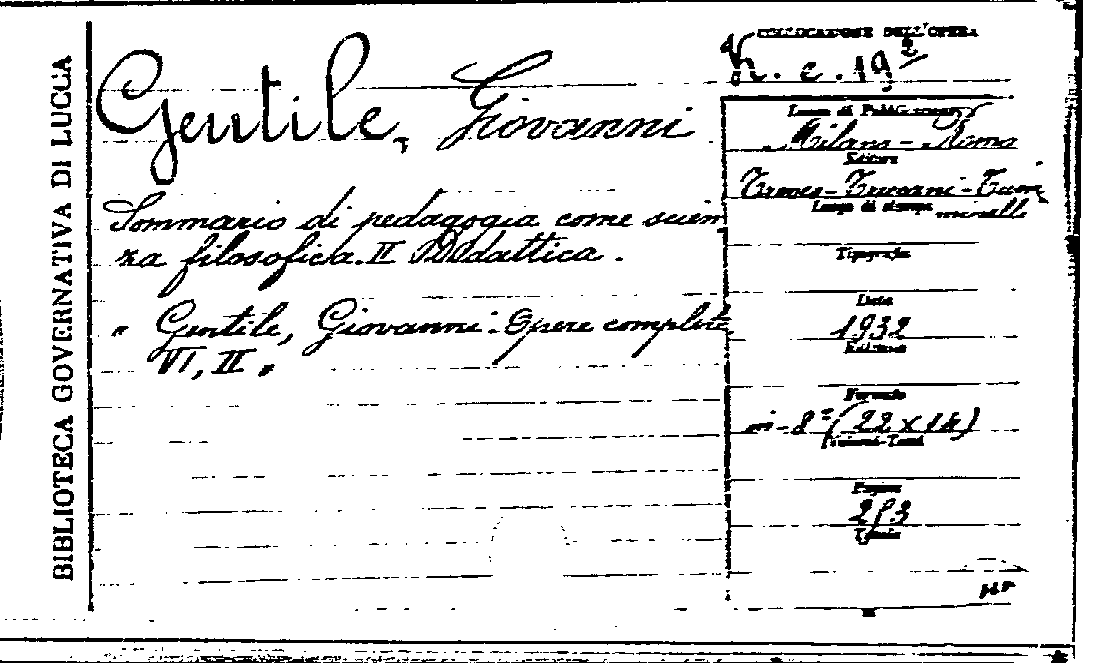 BIBLIOTECA GOVERNATIVA DI LUCCA
Gentile, Giovanni
Sommario di pedagogia come scien
za filosofica. II Didattica.
" Gentile, Giovanni: Opere complete
VI, II "
COLLOCAZIONE DELL'OPERA
K. c. 19²
Luogo di Pubblicazione
Milano - Roma
Editore
Treves - Treccani - Tum
minelli
Luogo di stampa
Tipografia
Data
1932
Edizione
Formato
in-8° (22 x 14)
Volumi-Tomi
Pagine
Tavole